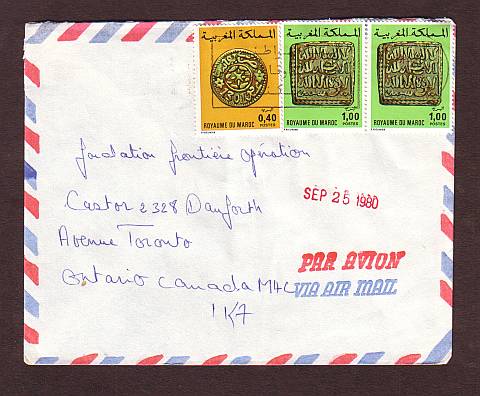 المملكة المغربية
المملكة المغربية
المملكة المغربية
0,40
POSTES
ROYAUME DU MAROC
1,00
POSTES
ROYAUME DU MAROC
1,00
POSTES
ROYAUME DU MAROC
fondation frontière opération
Castor 2328 Danforth
Avenue Toronto
Ontario Canada M4C
1K7
SEP 25 1980
PAR AVION
VIA AIR MAIL